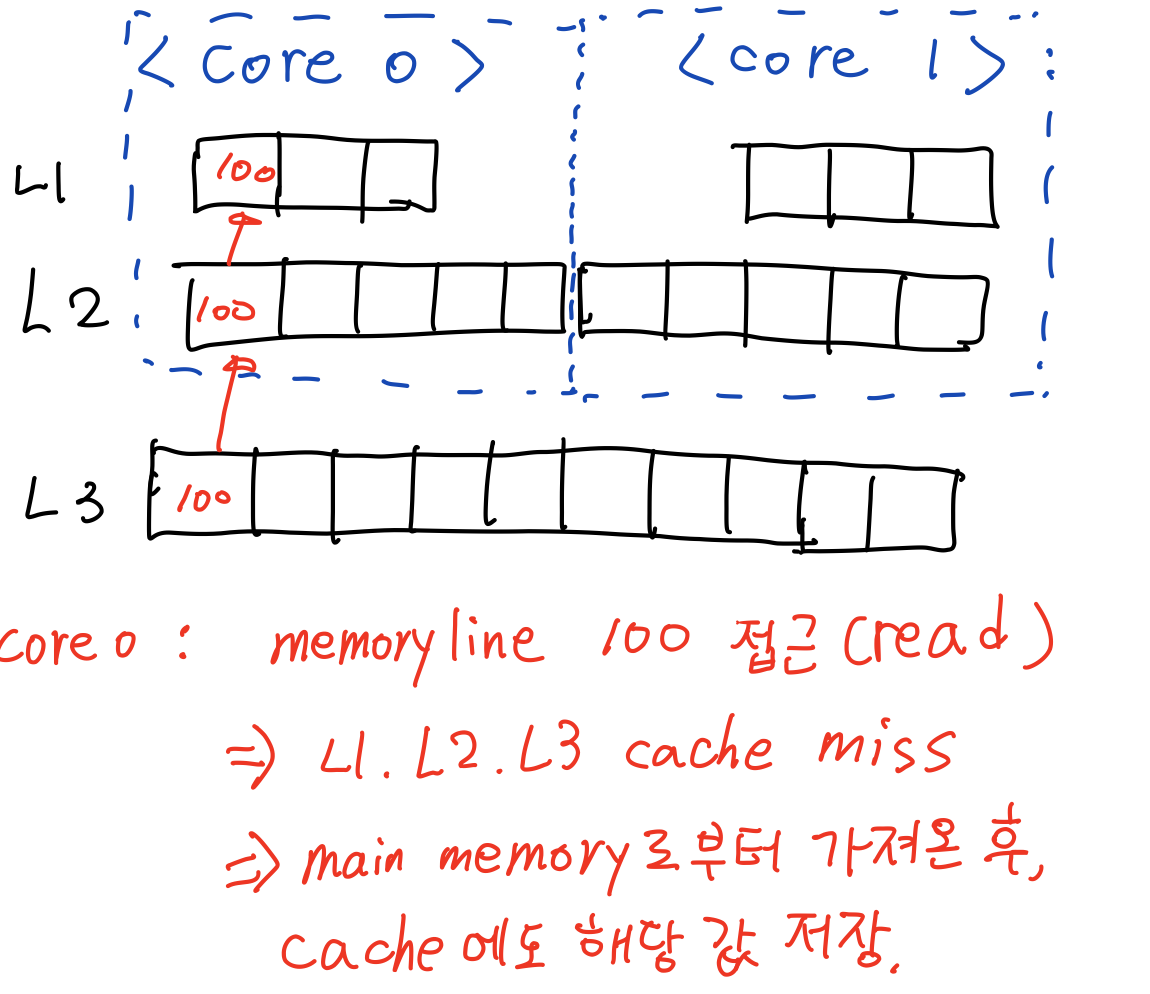 <core 0> <core 1>
L1 100
L2 100
L3 100
core 0 : memory line 100 접근 (read)
⇒ L1. L2. L3 cache miss
⇒ main memory로부터 가져온 후,
cache에도 해당 값 저장.